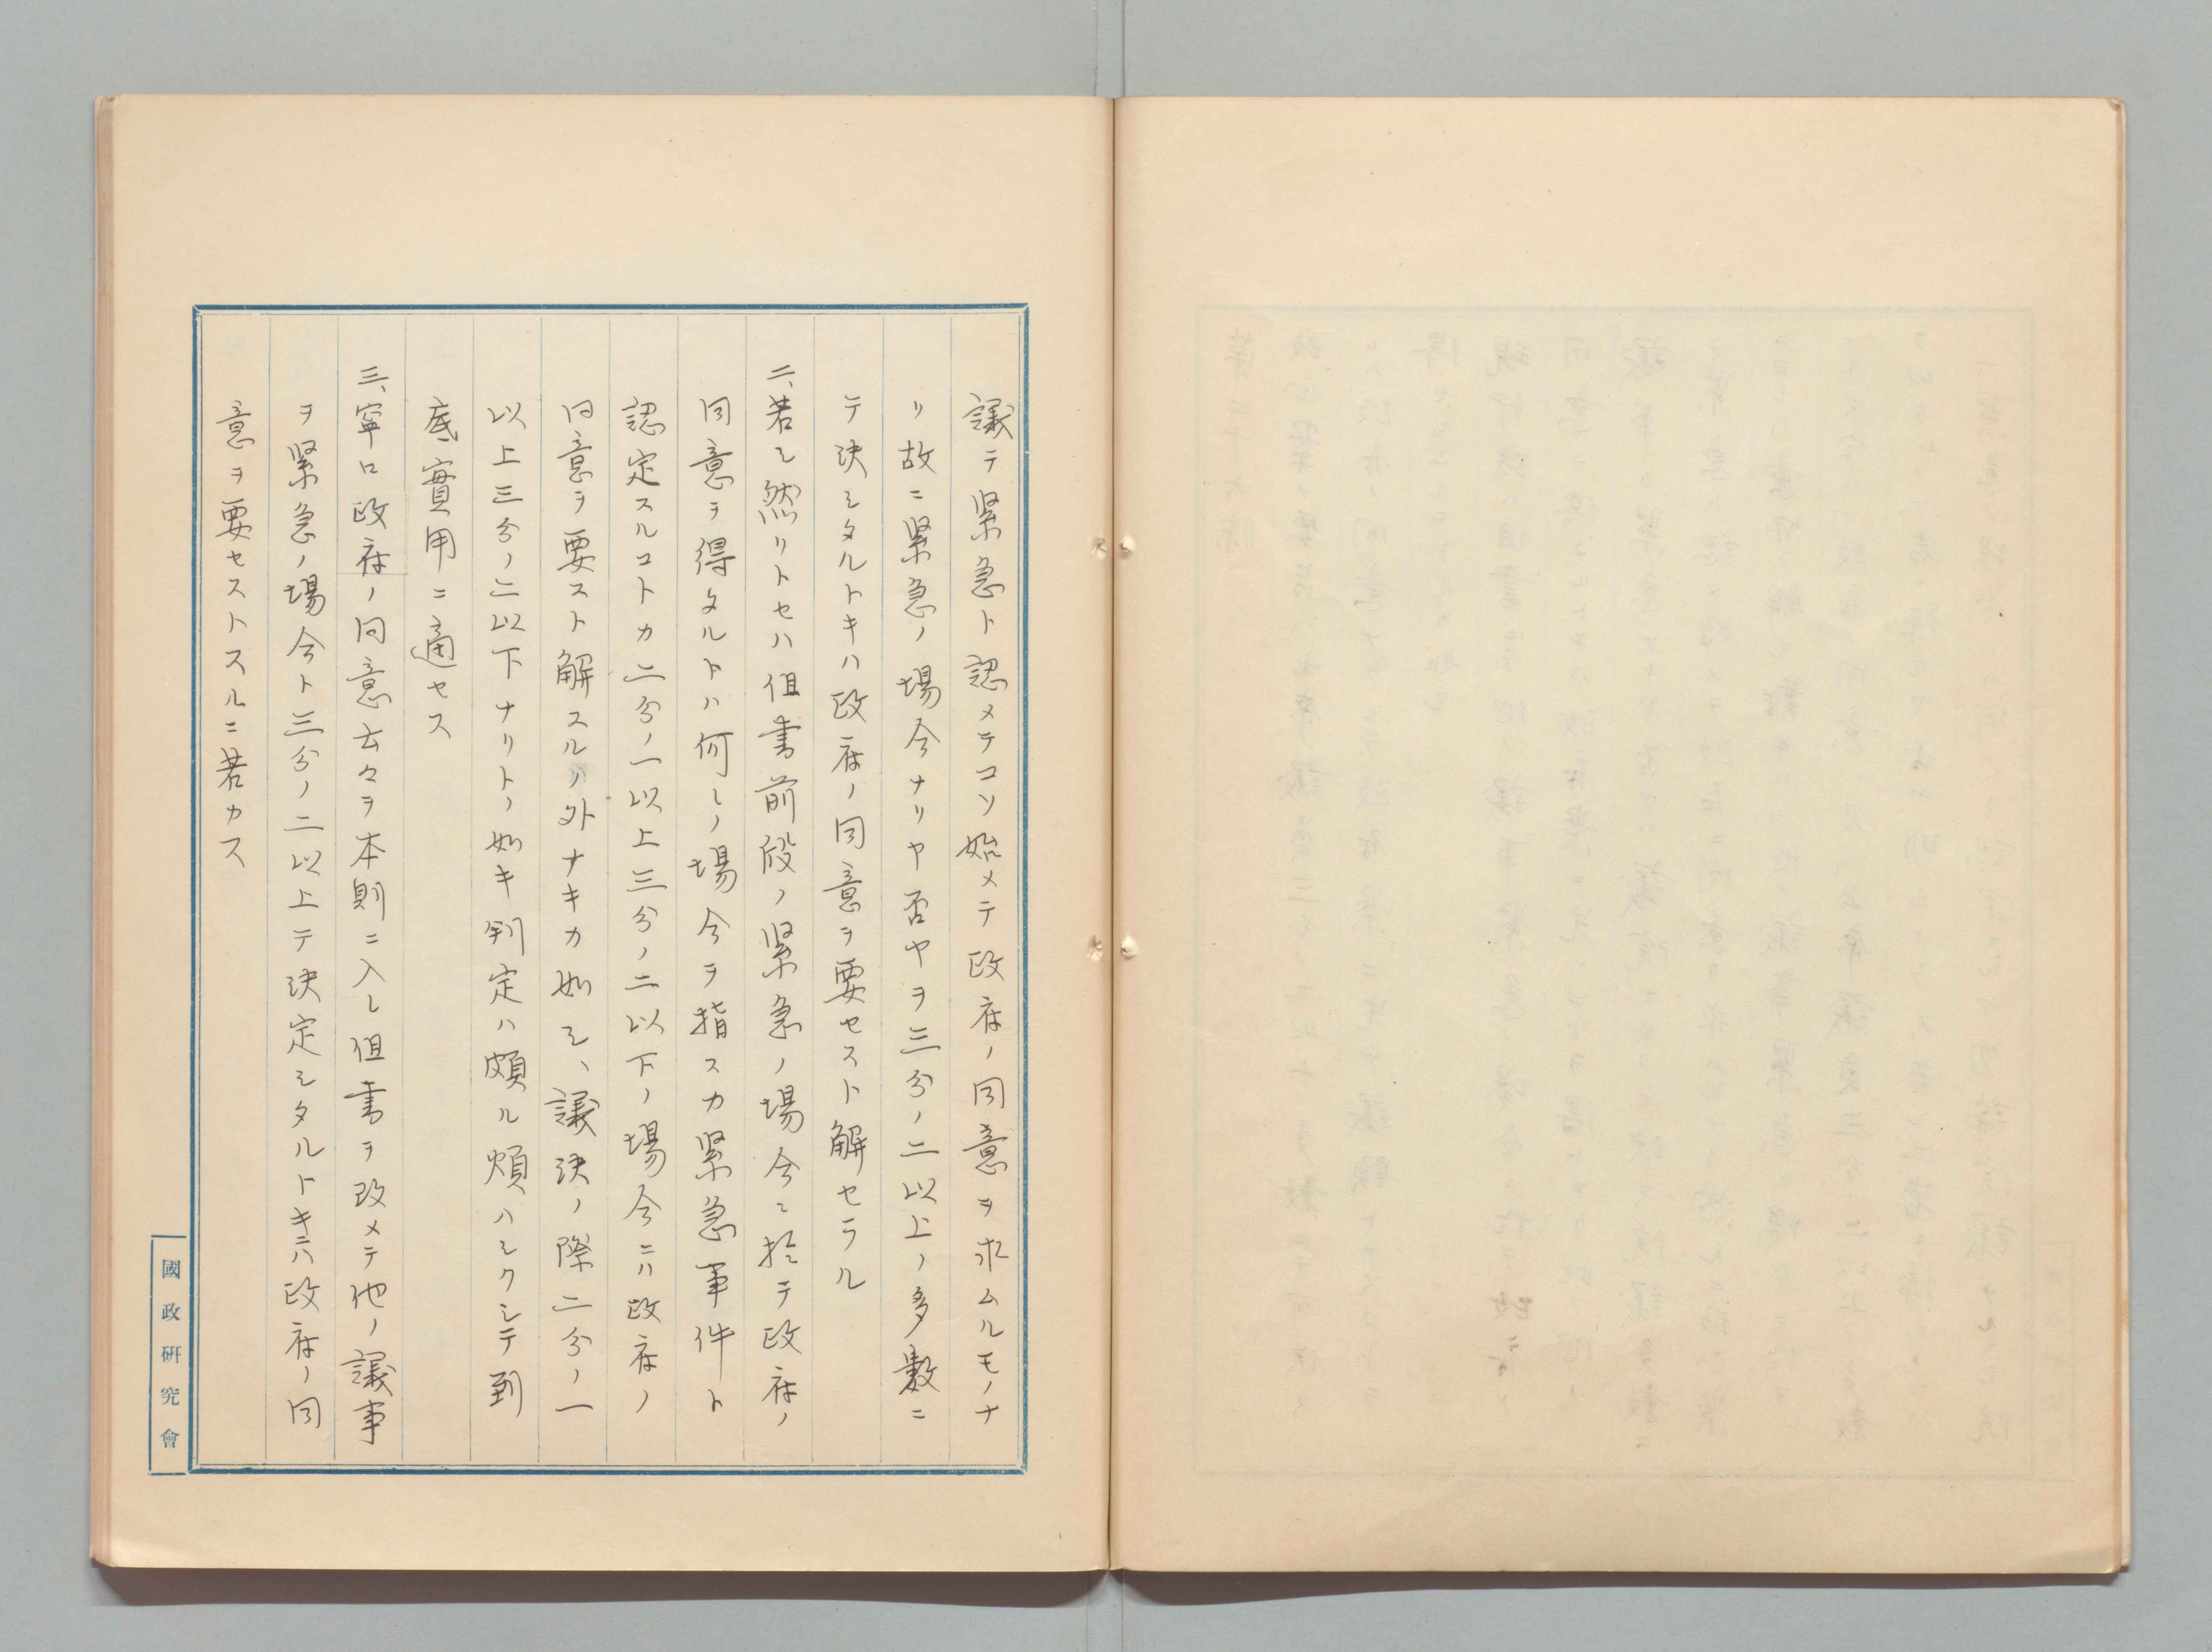 議テ緊急ト認メテコソ始メテ政府ノ同意ヲ求ムルモノナ
リ故ニ緊急ノ場合ナリヤ否ヤヲ三分ノ二以上ノ多數ニ
テ決シタルトキハ政府ノ同意ヲ要セスト解セラル
二、若シ然リトセハ但書前段ノ緊急ノ場合ニ於テ政府ノ
同意ヲ得タルトハ何レノ場合ヲ指スカ緊急事件ト
認定スルコトカ二分ノ一以上三分ノ二以下ノ場合ニハ政府ノ
同意ヲ要スト解スルノ外ナキカ如シ、議決ノ際二分ノ一
以上三分ノ二以下ナリトノ如キ判定ハ頗ル煩ハシクシテ到
底實用ニ適セス
三、寧ロ政府ノ同意云々ヲ本則ニ入レ但書ヲ改メテ他ノ議事
ヲ緊急ノ場合ト三分ノ二以上テ決定シタルトキニハ政府ノ同
意ヲ要セストスルニ若カス
國政硏究會